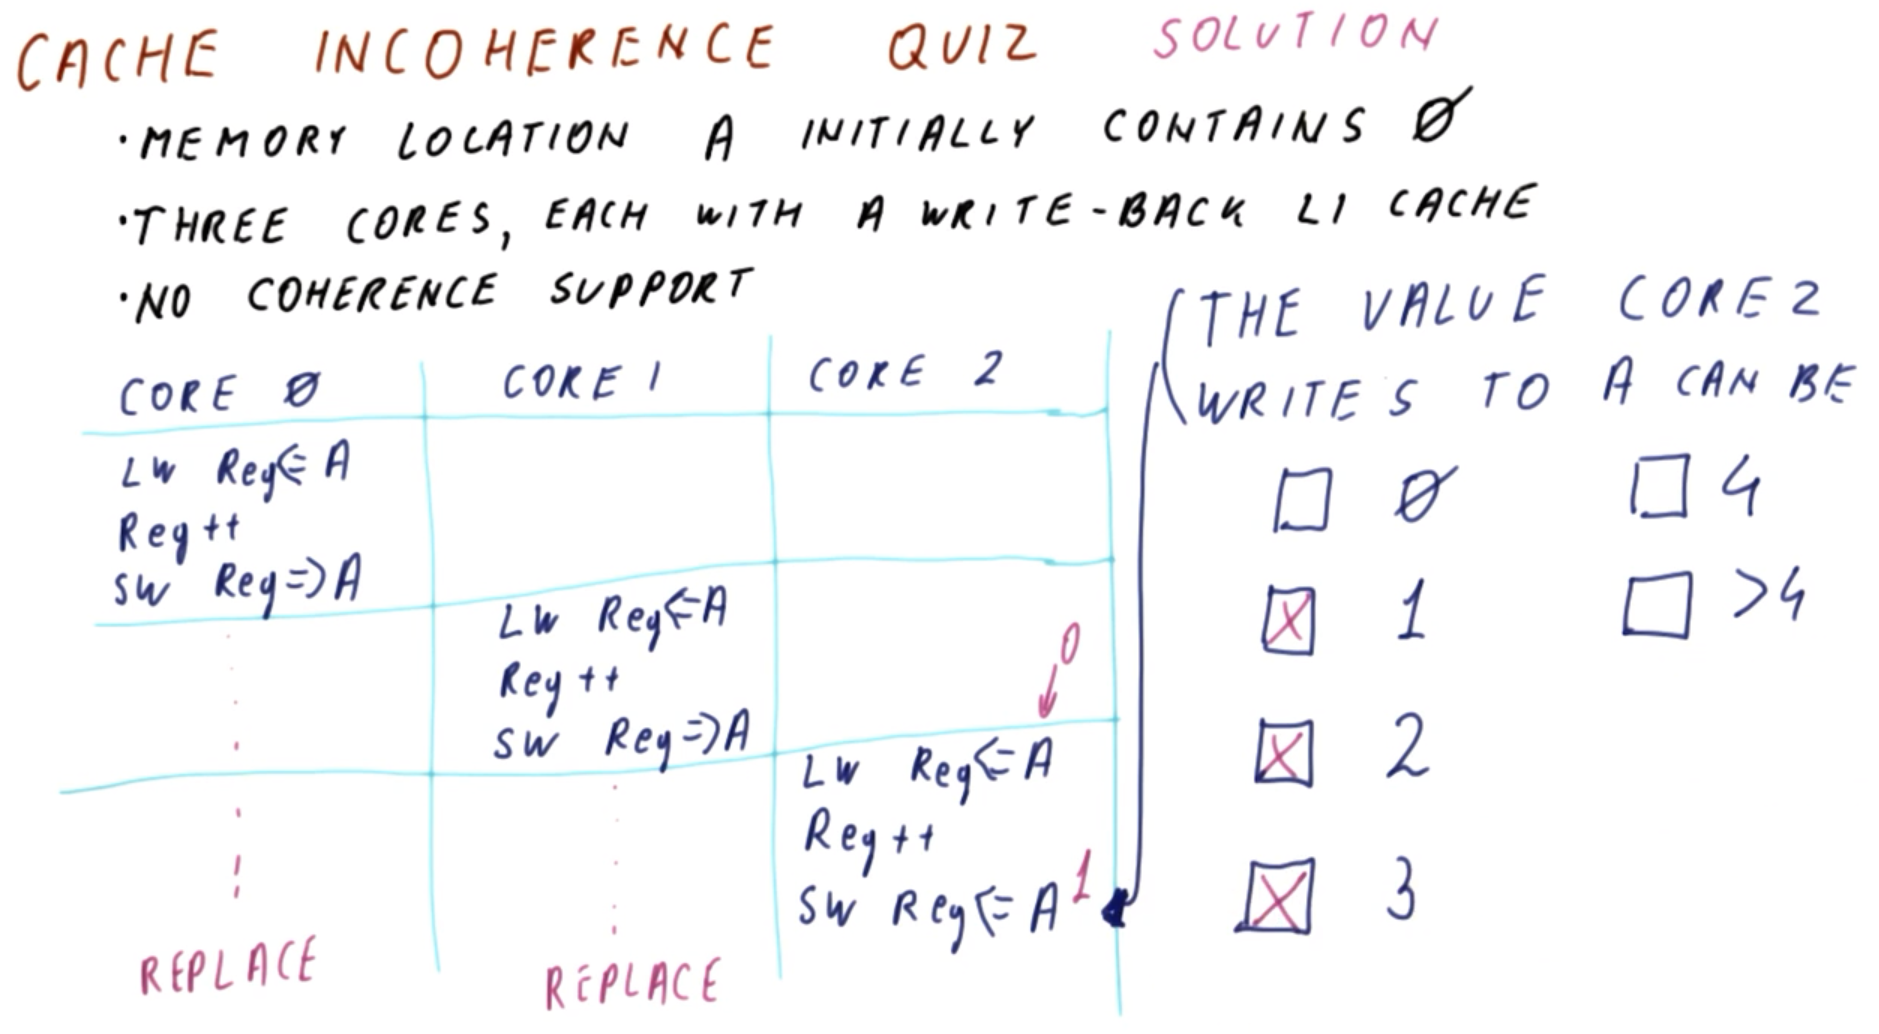 CACHE INCOHERENCE QUIZ SOLUTION
· MEMORY LOCATION A INITIALLY CONTAINS Ø
· THREE CORES, EACH WITH A WRITE-BACK L1 CACHE
· NO COHERENCE SUPPORT
CORE Ø CORE 1 CORE 2
LW Reg⇐A
Reg++
SW Reg=>A
LW Reg⇐A
Reg++
SW Reg=>A
0
LW Reg⇐A
Reg++
SW Reg⇐A 1
REPLACE REPLACE
THE VALUE CORE 2
WRITES TO A CAN BE
Ø 4
X 1 >4
X 2
X 3